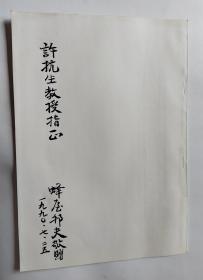 許抗生教授指正
蜂屋邦夫敬贈
一九九〇·七·二五